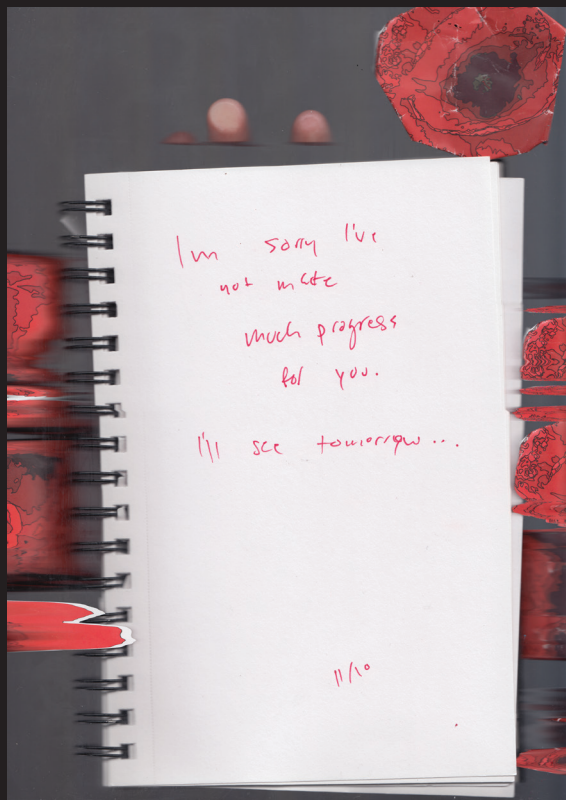 I'm sorry I've
not made
much progress
for you.
I'll see tomorrow...
11/10